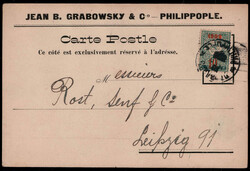 JEAN B. GRABOWSKY & Co — PHILIPPOPLE.
Carte Postle
Ce côté est exclusivement réservé à l'adresse.
Messieurs
Rost, Senf & Co
Leipzig 91